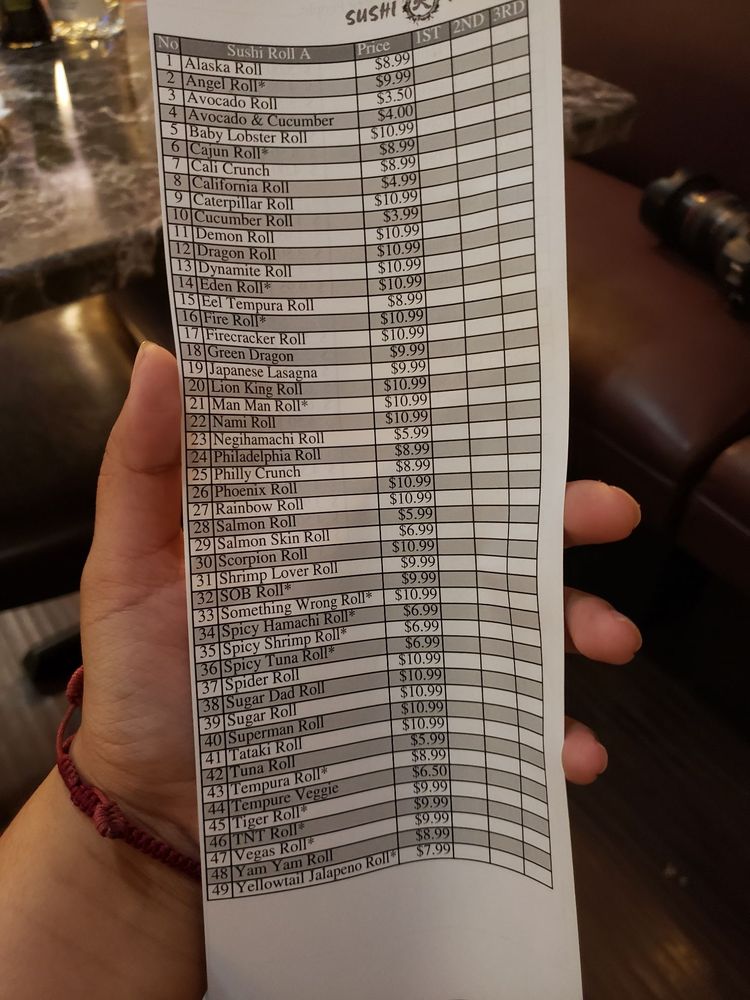 SUSHI
No Sushi Roll A Price 1ST 2ND 3RD
1 Alaska Roll $8.99
2 Angel Roll* $9.99
3 Avocado Roll $3.50
4 Avocado & Cucumber $4.00
5 Baby Lobster Roll $10.99
6 Cajun Roll* $8.99
7 Cali Crunch $8.99
8 California Roll $4.99
9 Caterpillar Roll $10.99
10 Cucumber Roll $3.99
11 Demon Roll $10.99
12 Dragon Roll $10.99
13 Dynamite Roll $10.99
14 Eden Roll* $10.99
15 Eel Tempura Roll $8.99
16 Fire Roll* $10.99
17 Firecracker Roll $10.99
18 Green Dragon $9.99
19 Japanese Lasagna $9.99
20 Lion King Roll $10.99
21 Man Man Roll* $10.99
22 Nami Roll $10.99
23 Negihamachi Roll $5.99
24 Philadelphia Roll $8.99
25 Philly Crunch $8.99
26 Phoenix Roll $10.99
27 Rainbow Roll $10.99
28 Salmon Roll $5.99
29 Salmon Skin Roll $6.99
30 Scorpion Roll $10.99
31 Shrimp Lover Roll $9.99
32 SOB Roll* $9.99
33 Something Wrong Roll* $10.99
34 Spicy Hamachi Roll* $6.99
35 Spicy Shrimp Roll* $6.99
36 Spicy Tuna Roll* $6.99
37 Spider Roll $10.99
38 Sugar Dad Roll $10.99
39 Sugar Roll $10.99
40 Superman Roll $10.99
41 Tataki Roll $10.99
42 Tuna Roll $5.99
43 Tempura Roll* $8.99
44 Tempure Veggie $6.50
45 Tiger Roll* $9.99
46 TNT Roll* $9.99
47 Vegas Roll* $9.99
48 Yam Yam Roll $8.99
49 Yellowtail Jalapeno Roll* $7.99